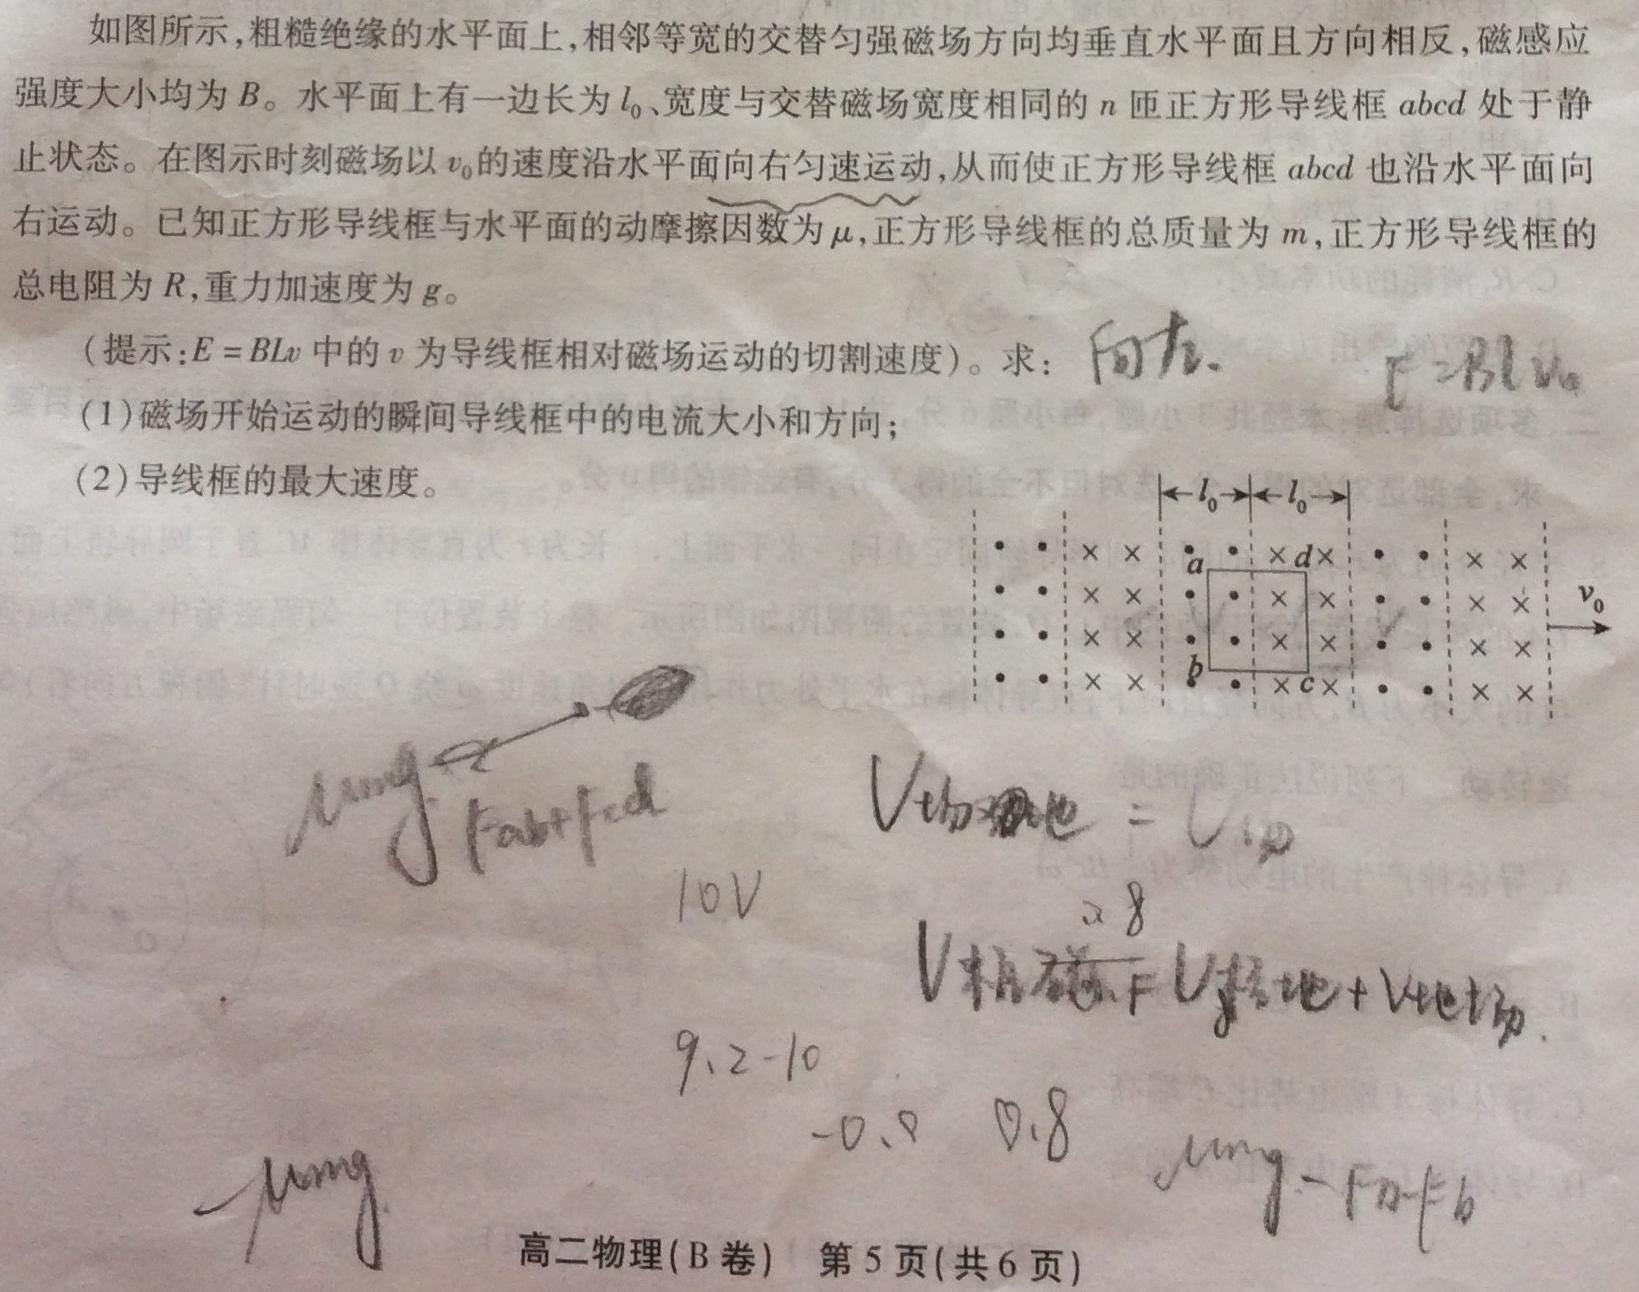 如图所示,粗糙绝缘的水平面上,相邻等宽的交替匀强磁场方向均垂直水平面且方向相反,磁感应
强度大小均为 B。水平面上有一边长为 l₀、宽度与交替磁场宽度相同的 n 匝正方形导线框 abcd 处于静
止状态。在图示时刻磁场以 v₀的速度沿水平面向右匀速运动,从而使正方形导线框 abcd 也沿水平面向
右运动。已知正方形导线框与水平面的动摩擦因数为 μ,正方形导线框的总质量为 m,正方形导线框的
总电阻为 R,重力加速度为 g。
(提示:E=BLv 中的 v 为导线框相对磁场运动的切割速度)。求:
向左.
E=Blv₀
(1)磁场开始运动的瞬间导线框中的电流大小和方向;
(2)导线框的最大速度。
l₀ l₀
a d
v₀
b c
μmg
Fab+Fcd
10V
9.2-10
0.8
μmg
μmg-
高二物理(B 卷) 第 5 页(共 6 页)